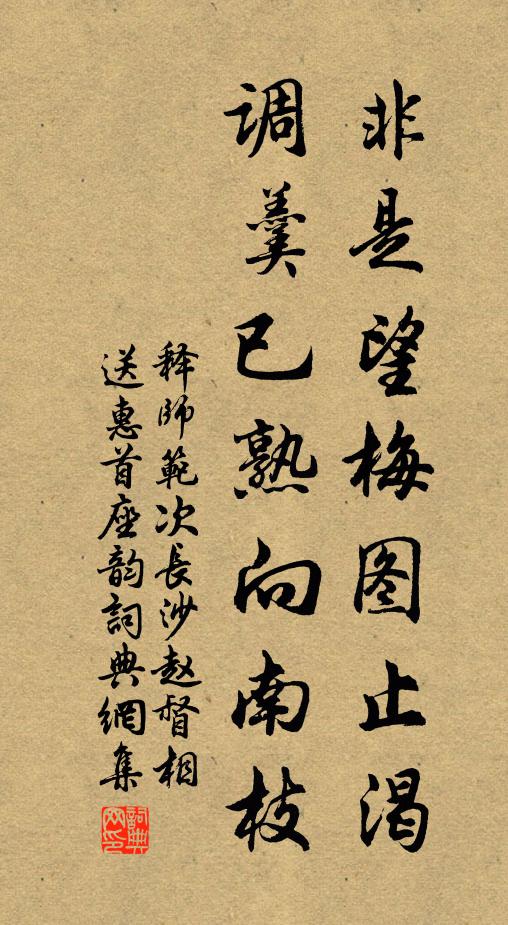 非是望梅图止渴
调羹已熟向南枝
释师範次长沙赵督相
送惠首座韵詞典網集
詞典网印